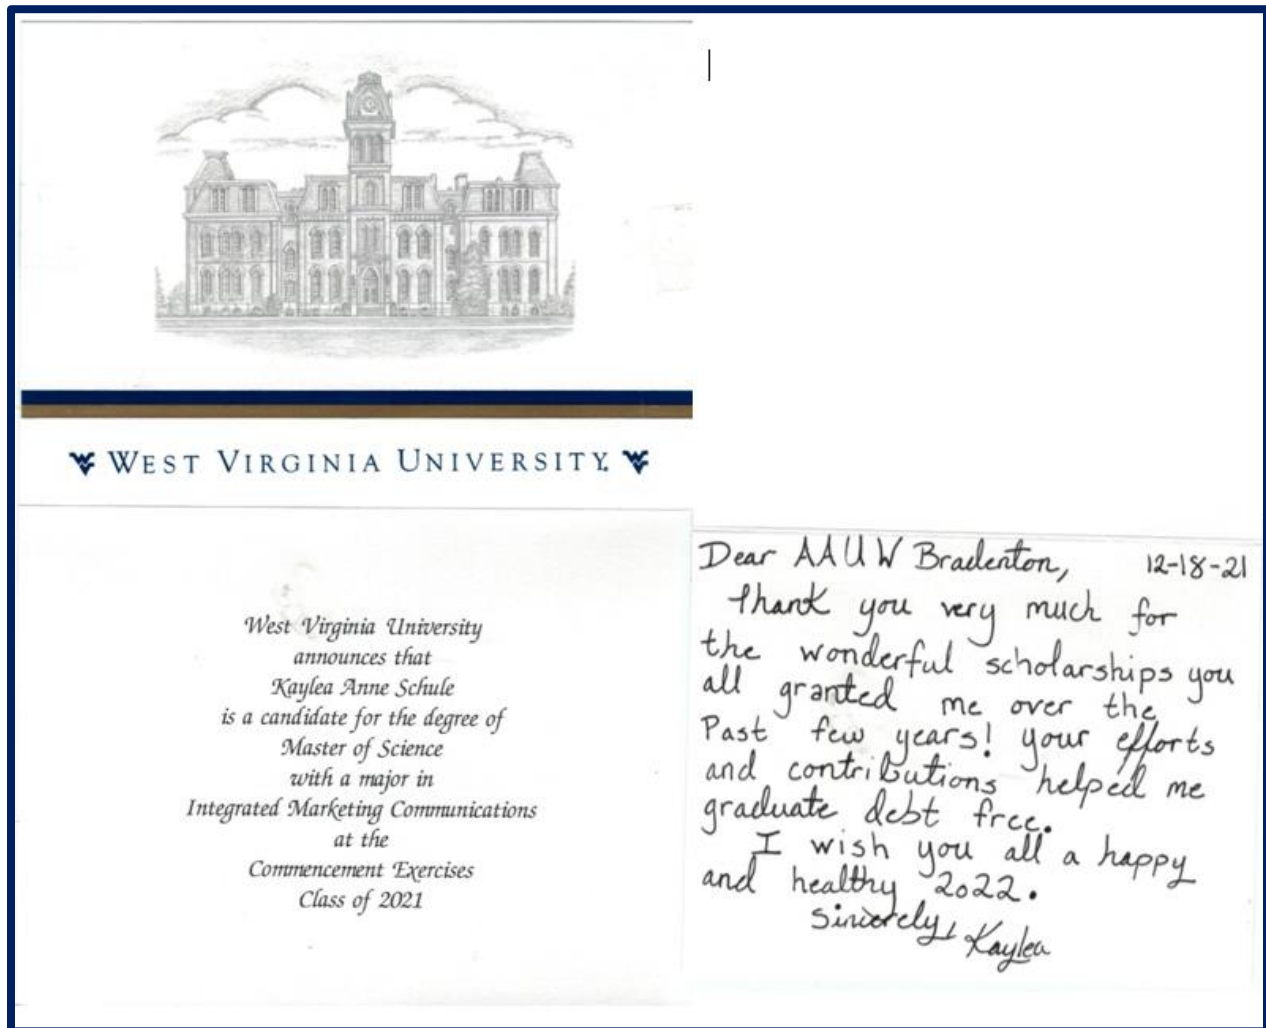 WEST VIRGINIA UNIVERSITY.
West Virginia University
announces that
Kaylea Anne Schule
is a candidate for the degree of
Master of Science
with a major in
Integrated Marketing Communications
at the
Commencement Exercises
Class of 2021
Dear AAUW Bradenton, 12-18-21
Thank you very much for
the wonderful scholarships you
all granted me over the
Past few years! your efforts
and contributions helped me
graduate debt free.
I wish you all a happy
and healthy 2022.
Sincerely, Kaylea